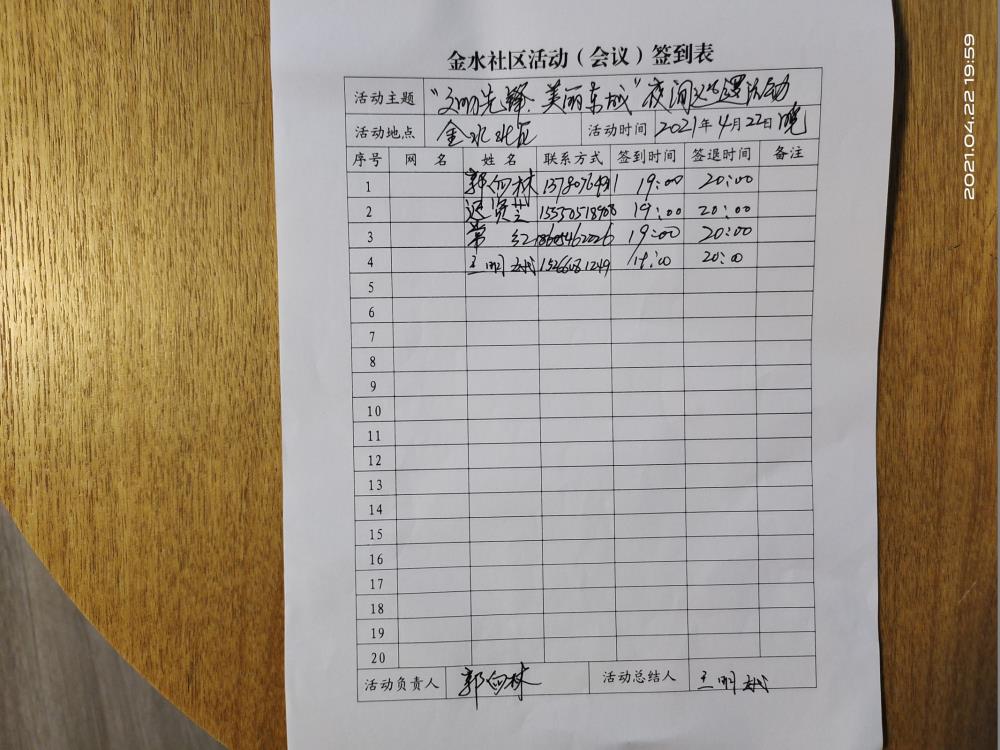 金水社区活动（会议）签到表
活动主题 "文明先锋·美丽东城"夜间巡逻活动
活动地点 金水社区 活动时间 2021年4月22日晚
序号 网名 姓名 联系方式 签到时间 签退时间 备注
1 郭向林 19:00 20:00
2 19:00 20:00
3 常红 18605462026 19:00 20:00
4 王明 20:00
5
6
7
8
9
10
11
12
13
14
15
16
17
18
19
20
活动负责人 郭向林 活动总结人 王明
2021.04.22 19:59